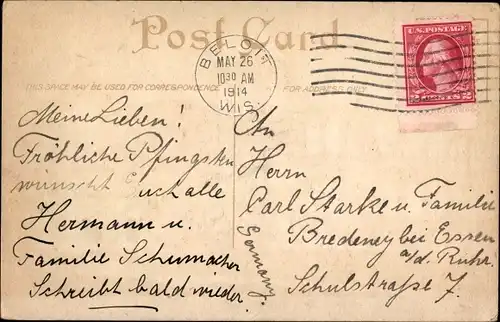 Post Card
THIS SPACE MAY BE USED FOR CORRESPONDENCE
FOR ADDRESS ONLY
BELOIT
MAY 26
10 30 AM
1914
WIS.
U.S. POSTAGE
Meine Lieben!
Fröhliche Pfingsten
wünscht Euch alle
Hermann u.
Familie Schumacher
Schreibt bald wieder
An
Herrn
Carl Starke u. Familie
Bredeney bei Essen
a/d. Ruhr.
Schulstraße 7.
Germany.